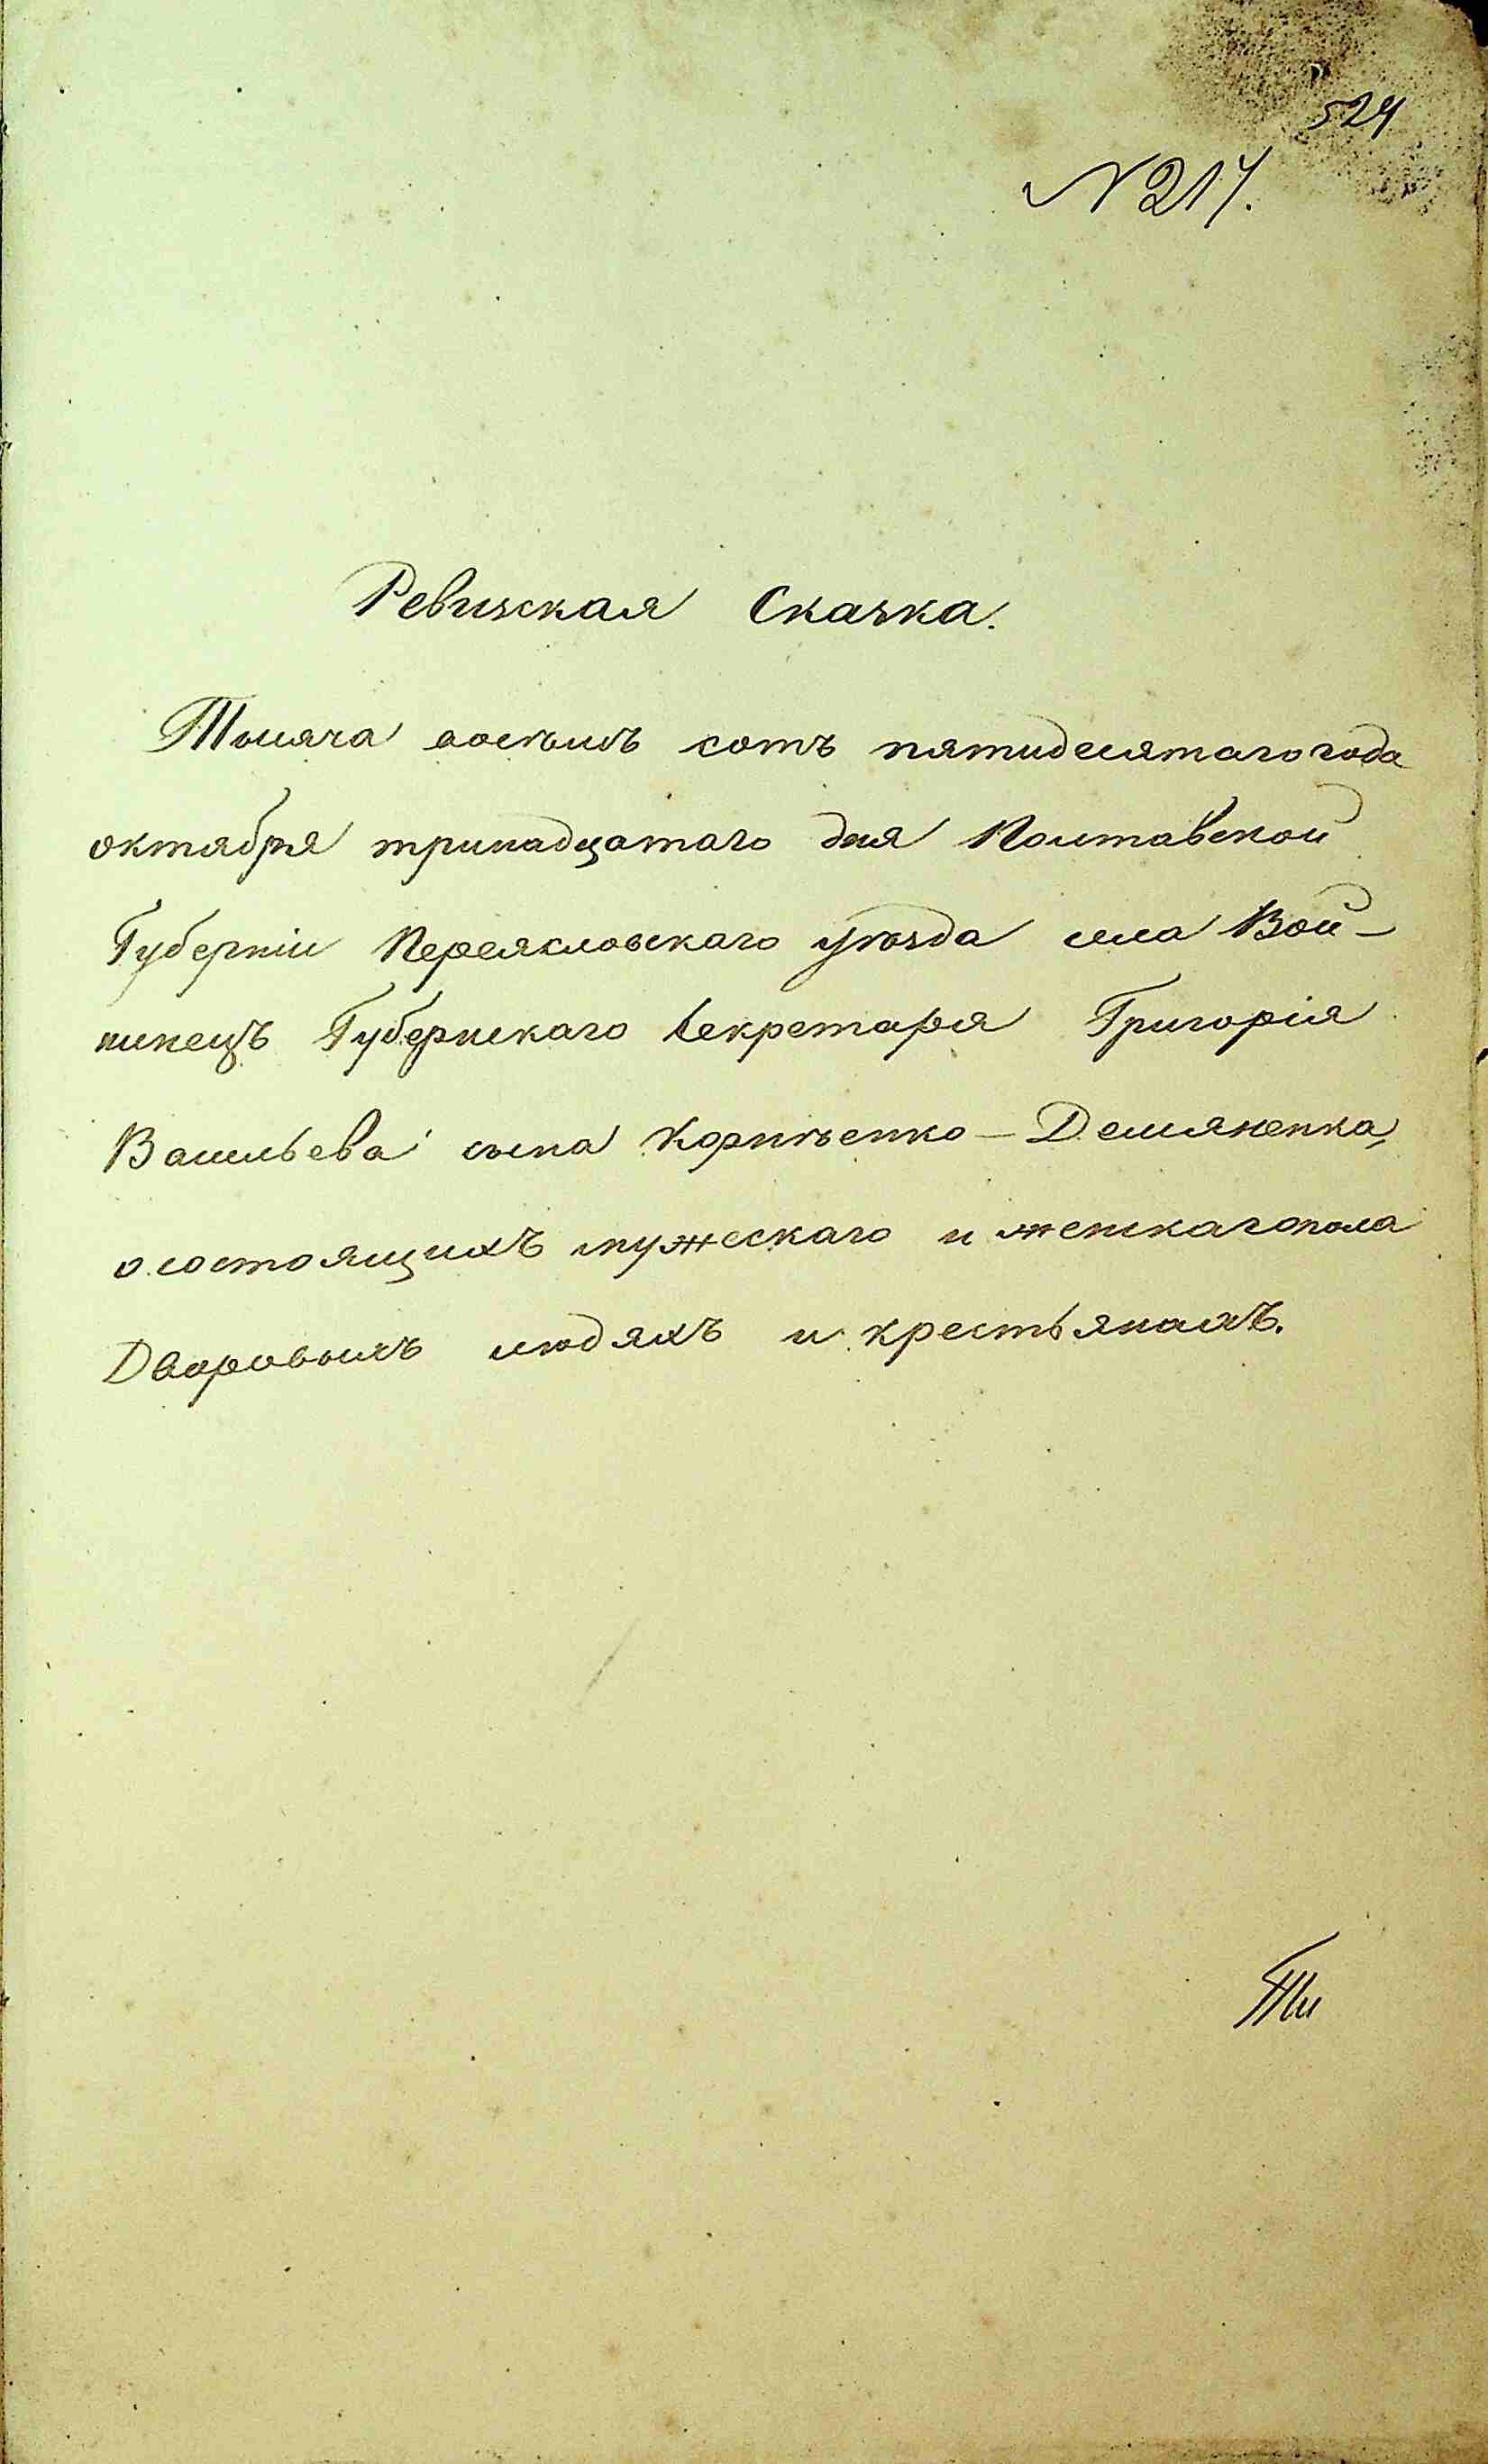 524
N 217.
Ревизская Сказка.
Тысяча восемь сотъ пятидесятаго года
октября тринадцатаго дня Полтавской
Губерніи Переясловскаго уѣзда села Вой-
нинецъ Губернскаго Секретаря Григорія
Васильева сына Корнѣенко-Демяненка,
о состоящихъ мужескаго и женскаго пола
Дворовыхъ людяхъ и крестьянахъ.